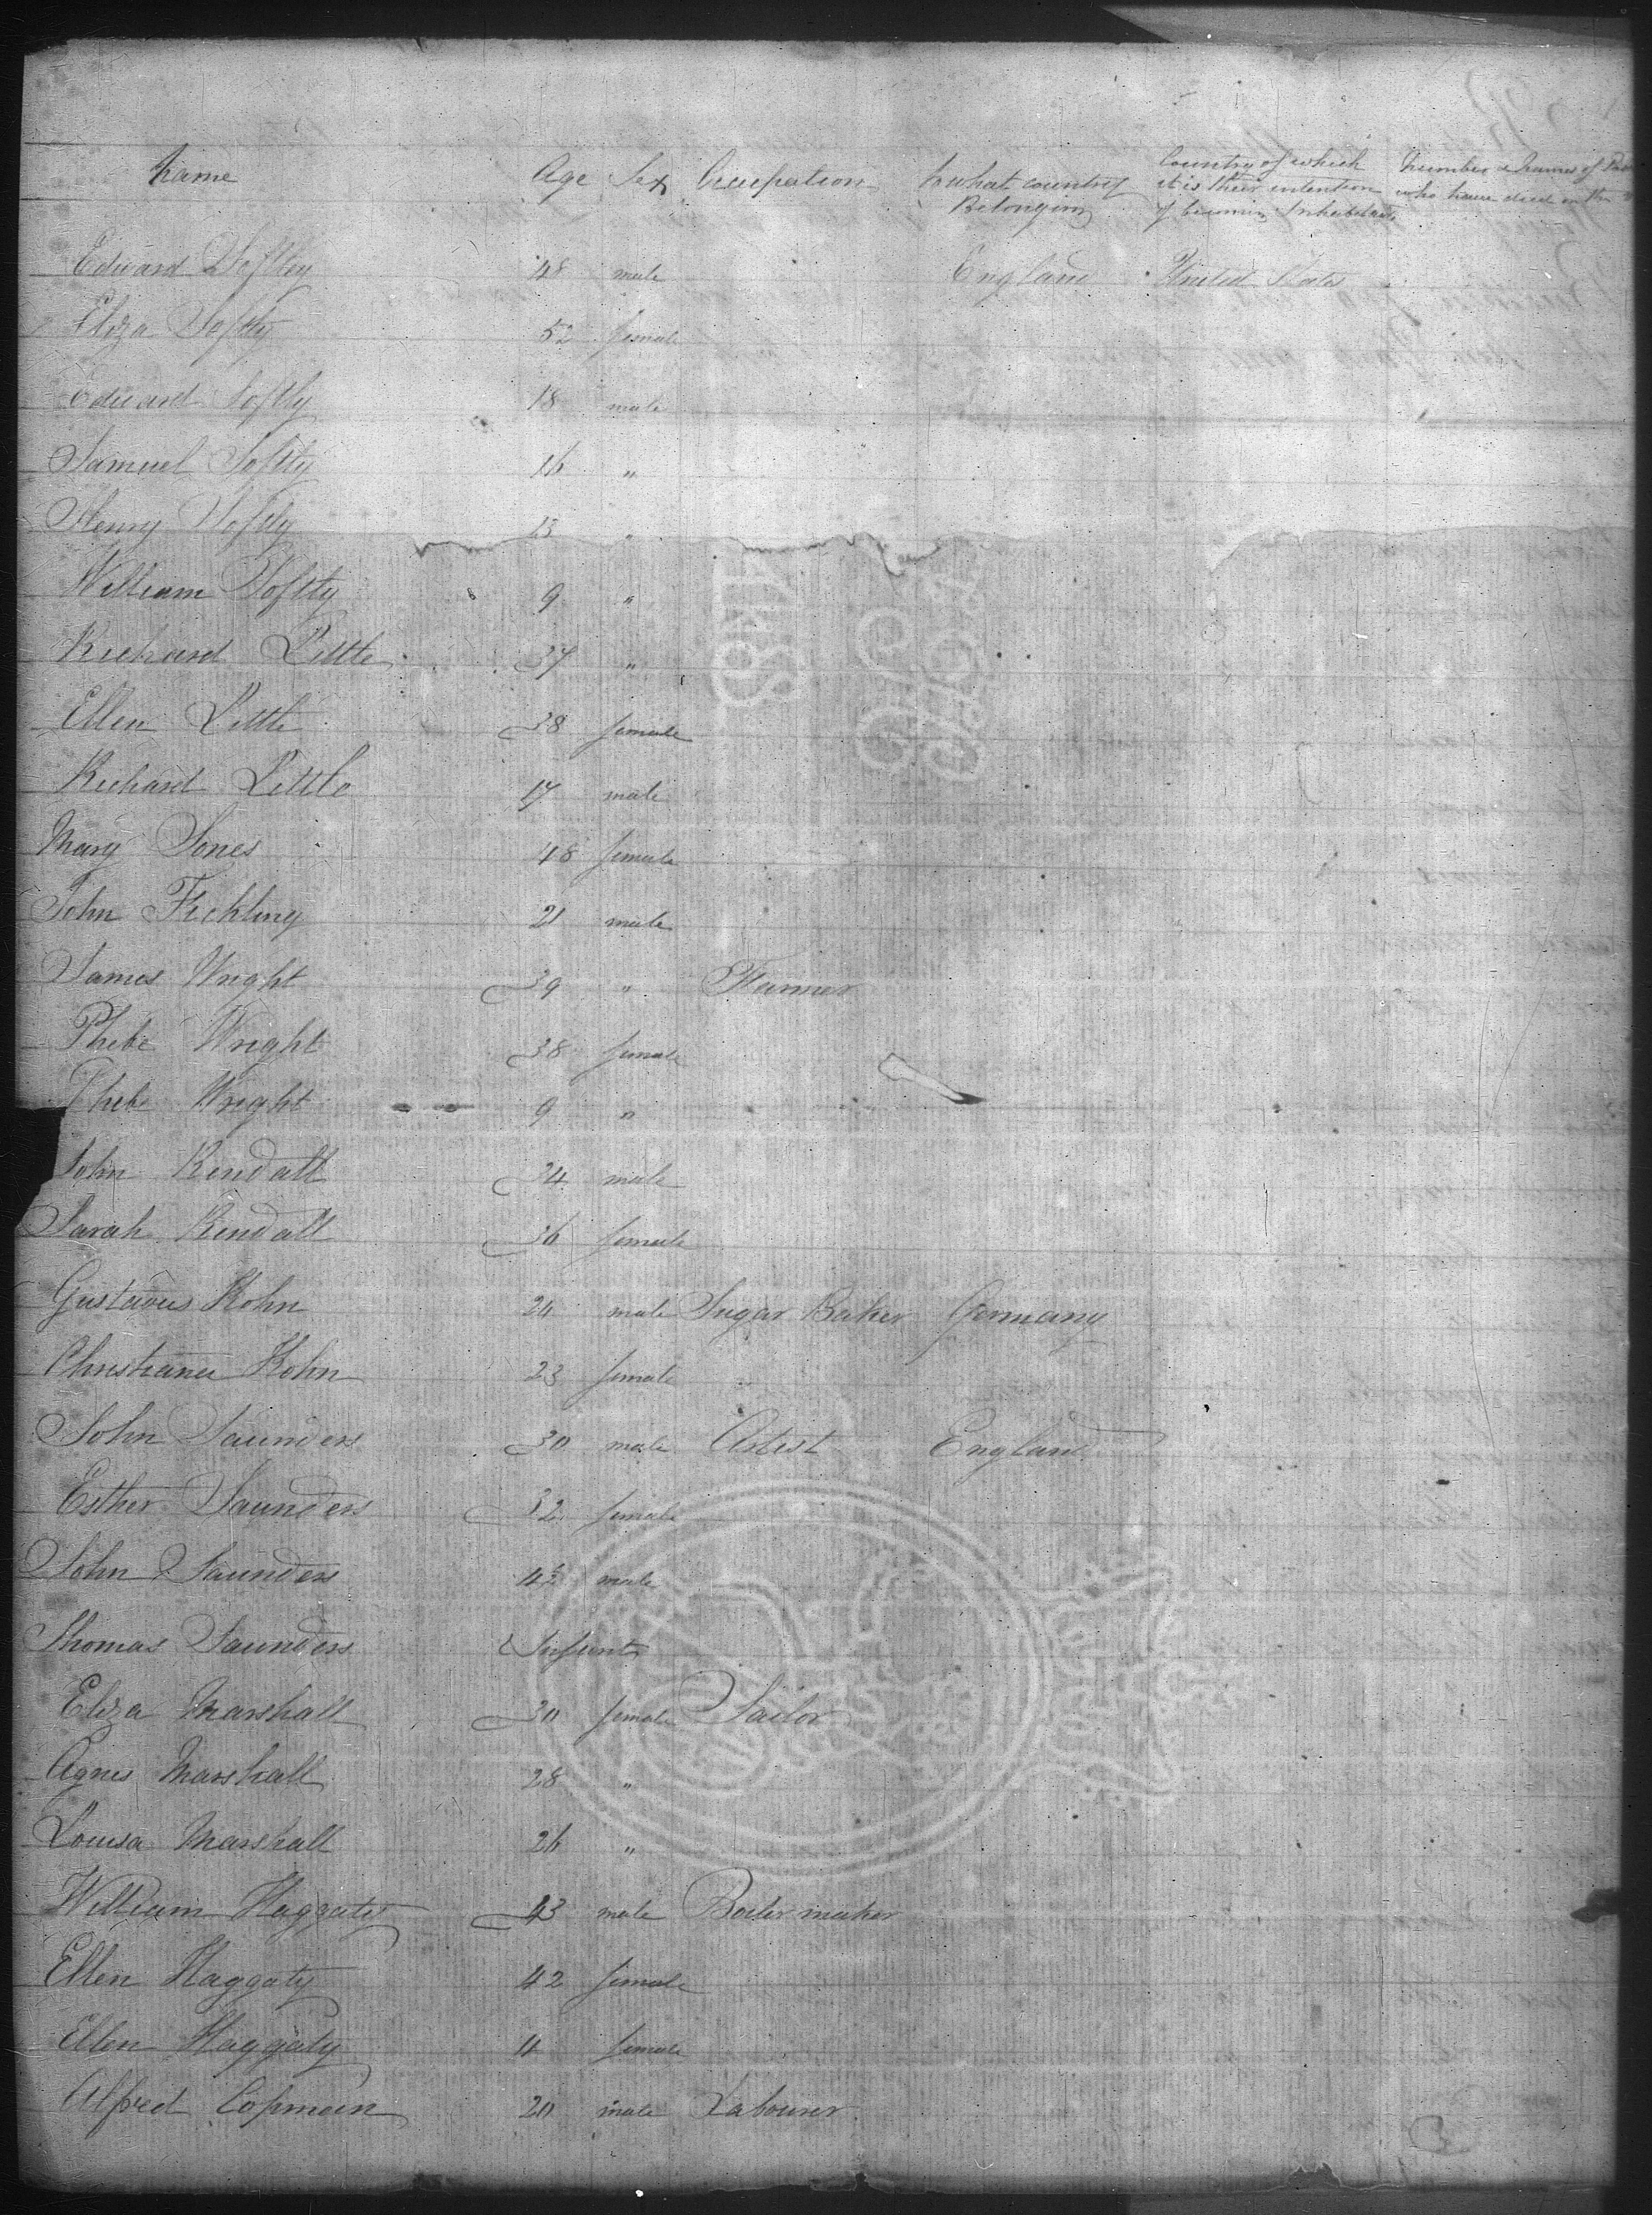 Name Age Sex Occupation to what country Belonging Country of which it is their intention of becoming Inhabitants Number & Names of who have died on the
Edward Softly 48 male England United States
Eliza Softly 52 female
Edward Softly 18 male
Samuel Softly 16 "
Henry Softly 13 "
William Softly 9 "
Richard Little 37 "
Ellen Little 38 female
Richard Little 17 male
Mary Jones 48 female
John Fickling 21 male
James Wright 39 " Farmer
Phebe Wright 38 female
Phebe Wright 9 "
John Kendall 34 male
Sarah Kendall 36 female
Gustavus Kohn 24 male Sugar Baker Germany
Christiana Kohn 23 female
John Saunders 30 male Artist England
Esther Saunders 32 female
John Saunders male
Thomas Saunders Infant
Eliza Marshall 30 female
Agnes Marshall 28 "
Louisa Marshall 26 "
William Haggaty 43 male Boiler maker
Ellen Haggaty 42 female
Ellen Haggaty 11 female
Alfred Copmain 20 male Labourer